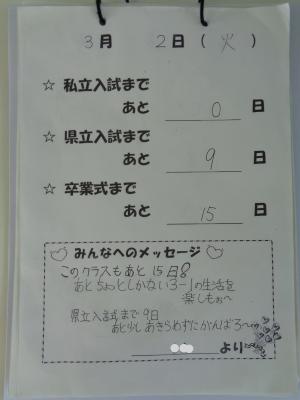 3月 2日(火)
☆ 私立入試まで
あと 0 日
☆ 県立入試まで
あと 9 日
☆ 卒業式まで
あと 15 日
みんなへのメッセージ
このクラスもあと15日!
あとちょっとしかない3-1の生活を
楽しもぉ〜
県立入試まで9日
あと少しあきらめずにがんばろ〜
より